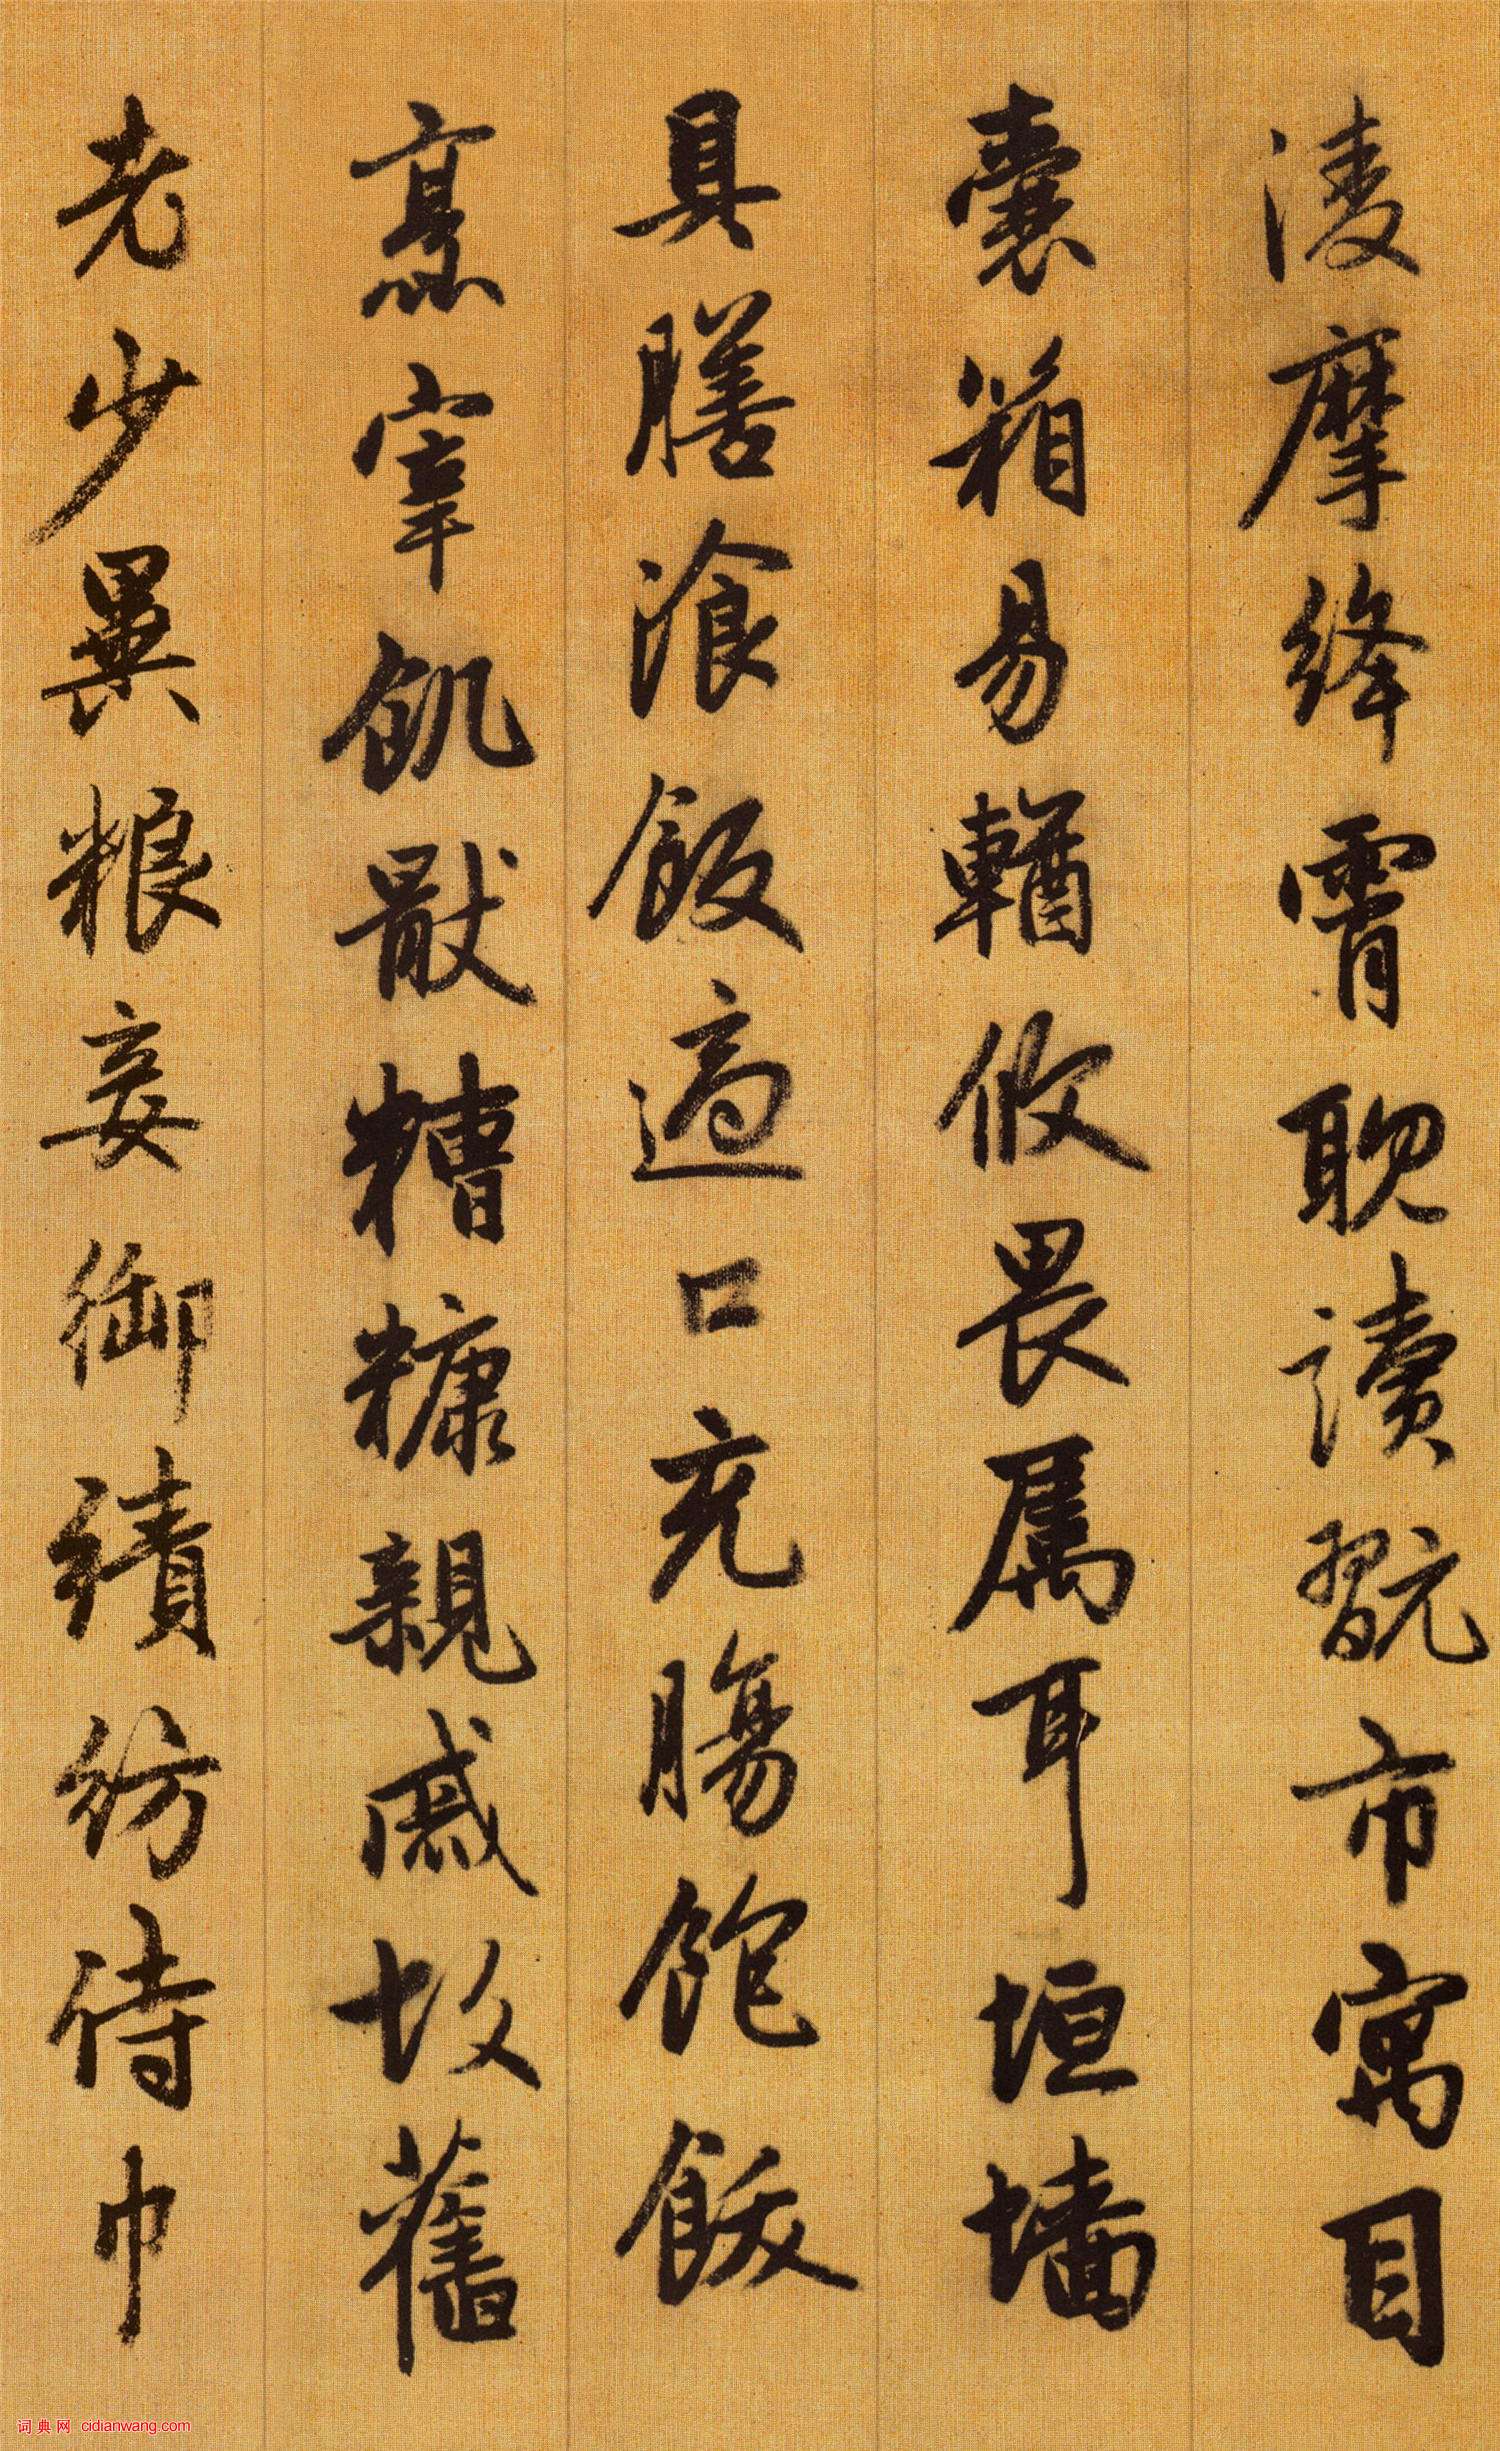 凌摩絳霄耽讀翫市寓目
囊箱易輶攸畏属耳垣墙
具膳飡飯適口充腸飽飫
烹宰飢猒糟糠親戚故舊
老少異粮妾御績紡侍巾
词典网 cidianwang.com